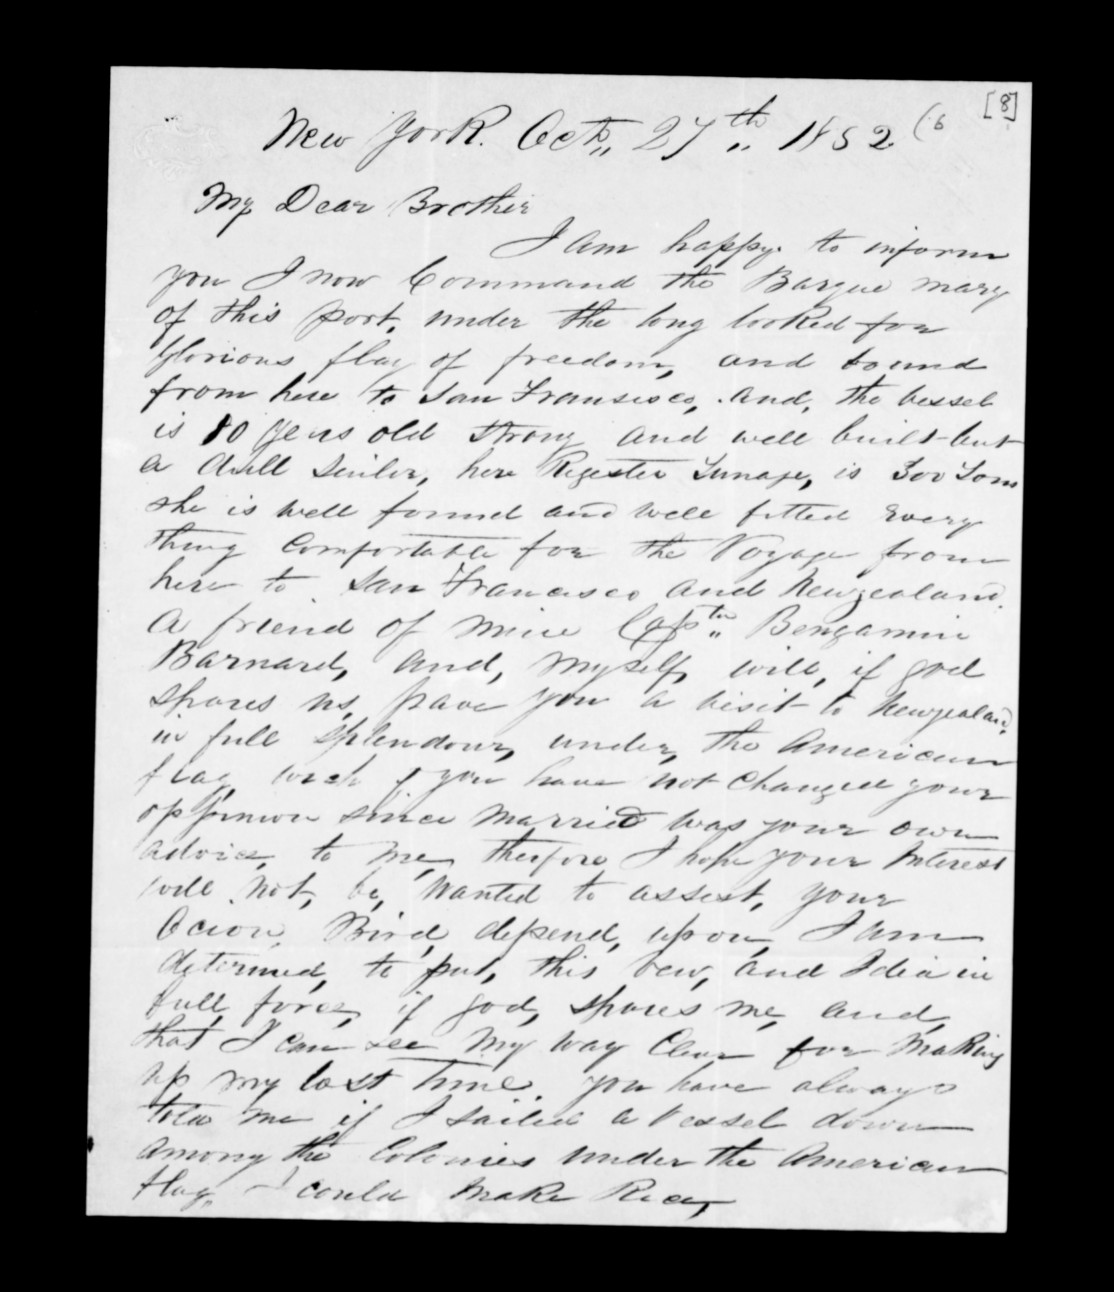 [8]
New York. Oct,, 27th,, 1852. (6
My Dear Brother
I am happy. to inform
you I now Command the Barque mary
of this port, under the long looked for
Glorious flag of freedom, and bound
from here to San Fransisco, and, the vessel
is 10 years old strong and well built but
a dull sailer, here Regester Tunage, is 300 Tons
she is well found and well fitted Every
thing Comfortable for the Voyage from
here to San Francisco and Newzealand,
A friend of mine Captn,, Bengamin
Barnard, and, myself, will, if god
spares us, pave you a visit to Newzealand,
in full splendour, under, the American
flag, if you have not Changed your
oppinion since Married was your own
advice, to me, therfore I hope your Interest
will, not, be, wanted to assest, your
Bird, depend, upon, I am
determed, to put, this vew, and Idia in
full force, if god, spares me, and,
that I can see My way Clear for Making
up my lost time. you have always
told me if I sailed a Vessel down
among the Colonies under the American
flag,, I could Make